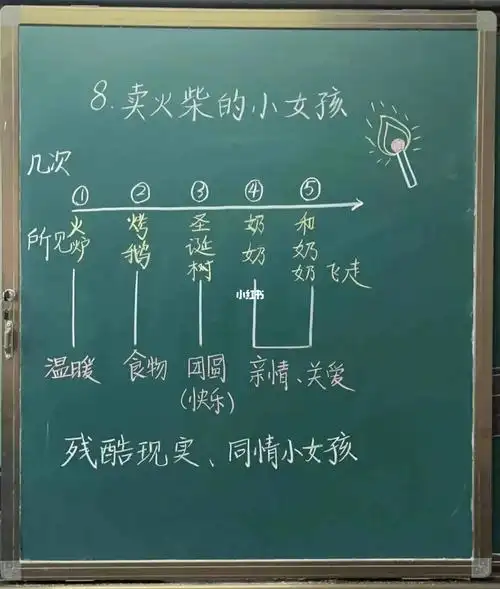 8.卖火柴的小女孩
几次
① ② ③ ④ ⑤
所见 火炉 烤鹅 圣诞树 奶奶 和奶奶飞走
小红书
温暖 食物 团圆 亲情、关爱
(快乐)
残酷现实、同情小女孩